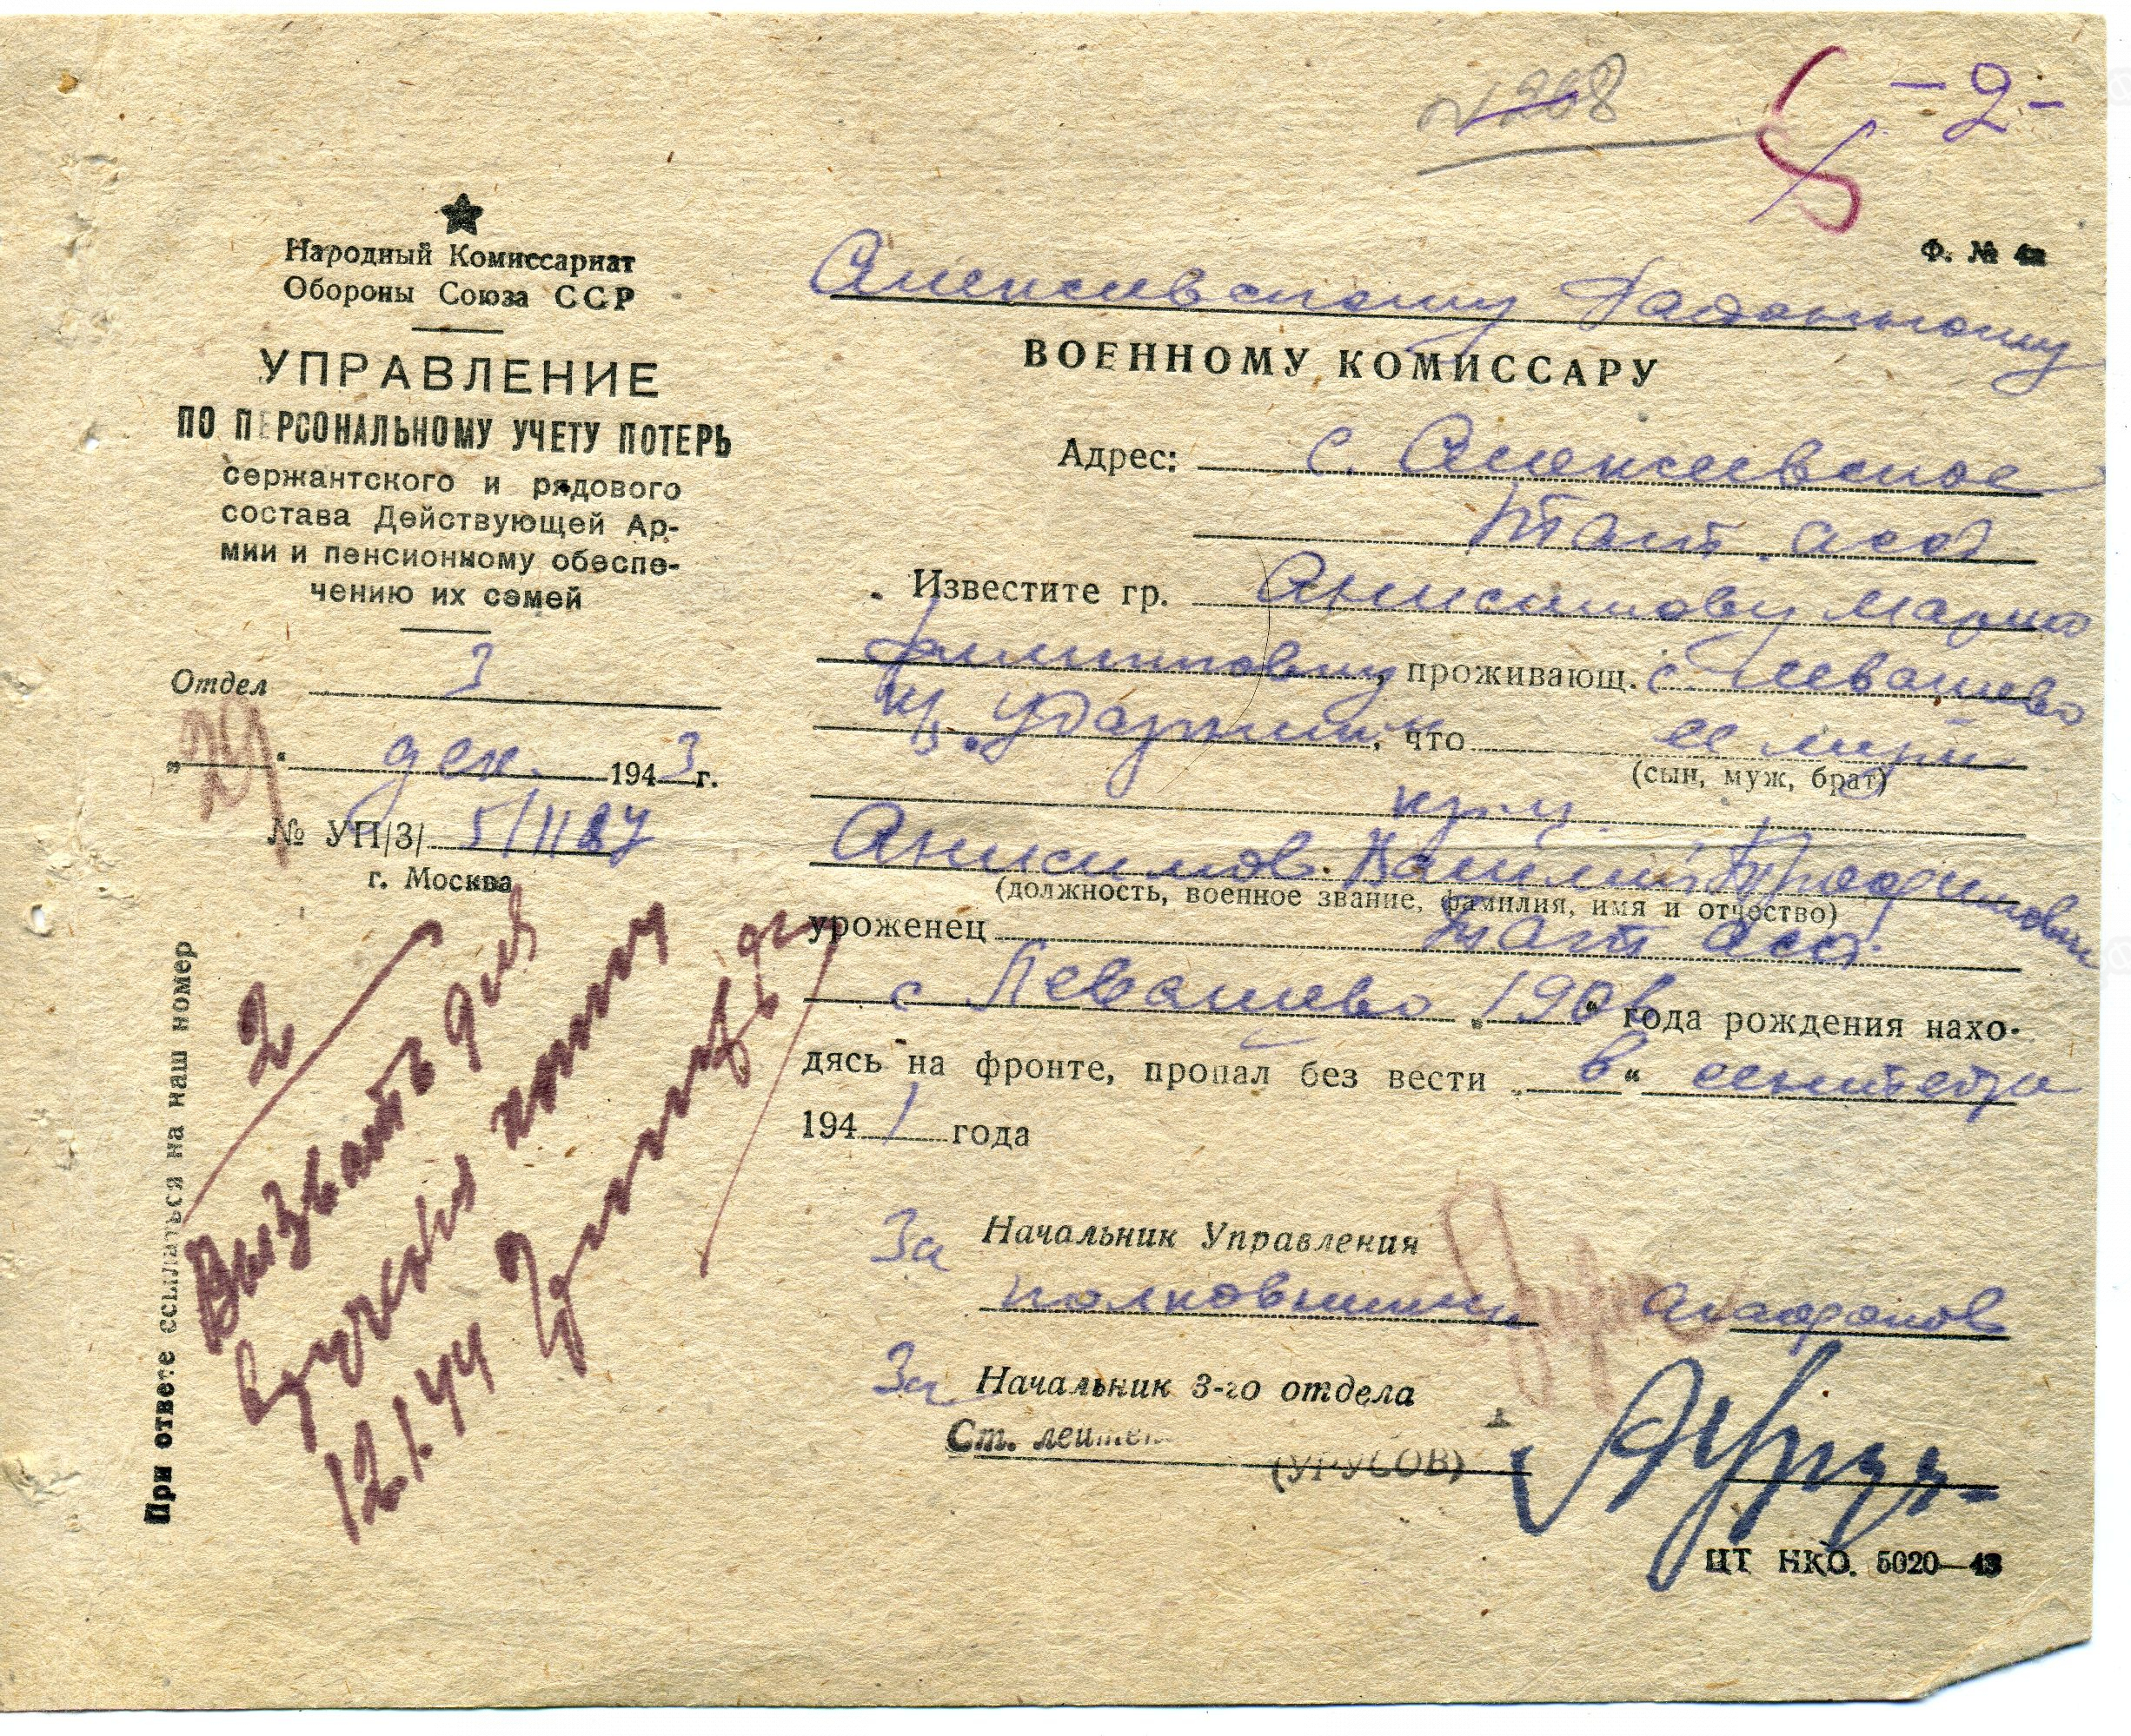 № 208
- 2 -
5
Ф. № 4а
Народный Комиссариат
Обороны Союза ССР
УПРАВЛЕНИЕ
ПО ПЕРСОНАЛЬНОМУ УЧЕТУ ПОТЕРЬ
сержантского и рядового
состава Действующей Ар-
мии и пенсионному обеспе-
чению их семей
Отдел 3
„29“ дек. 1943 г.
№ УП/3/ 5/11187
г. Москва
При ответе ссылаться на наш номер
2
Вызвать для
вручения
12.1.44
Алексеевскому Районному
ВОЕННОМУ КОМИССАРУ
Адрес: с. Алексеевское
Тат. асср
Известите гр. Анисимову Марию
Филипповну, проживающ. с. Левашево
что ее муж
(сын, муж, брат)
кр-ц
Анисимов
(должность, военное звание, фамилия, имя и отчество)
уроженец Тат асср
с Левашево „190 “ года рождения нахо-
дясь на фронте, пропал без вести „в“ сентябре
1941 года
За Начальник Управления
полковник Агафонов
За Начальник 3-го отдела
Ст. лейтен
(УРУСОВ)
ЦТ НКО. 5020—43